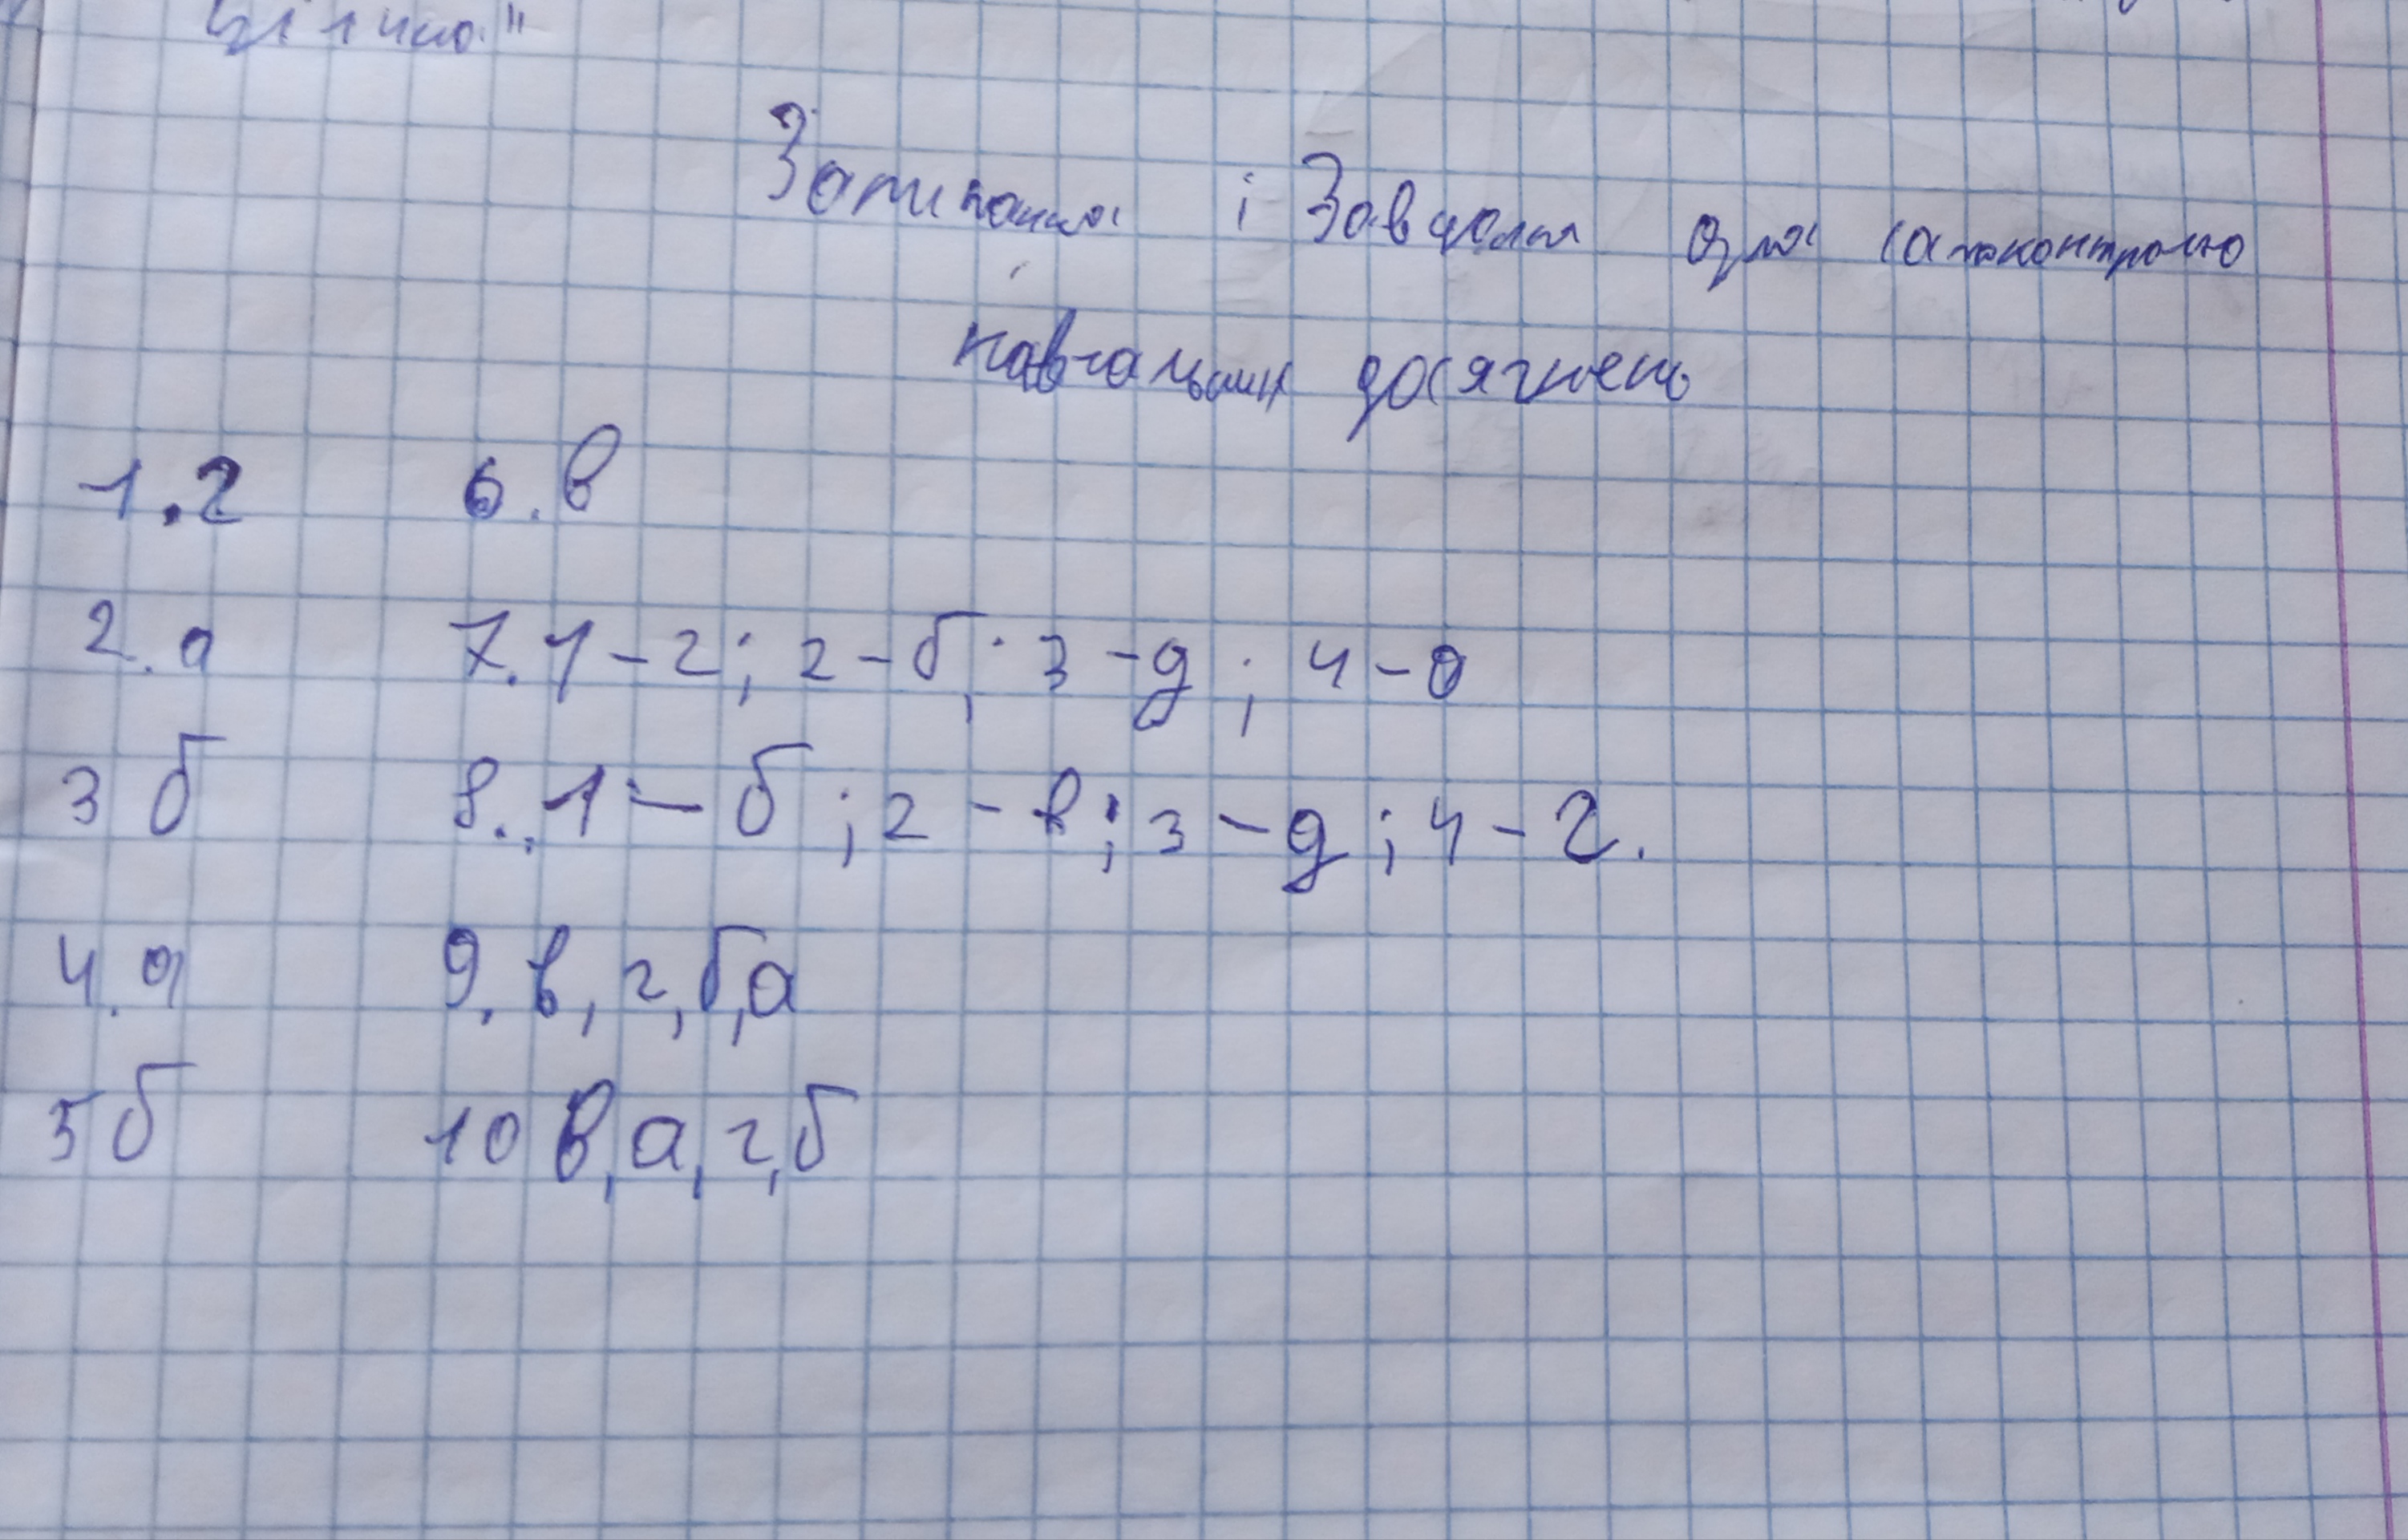 Запитання і Завдання для самоконтролю
навчальних досягнень
1. г 6. в
2. а 7. 1 – г; 2 – б; 3 – д; 4 – а
3 б 8. 1 – б; 2 – в; 3 – д; 4 – г.
4. а 9. в, г, б, а
5 б 10 в, а, г, б